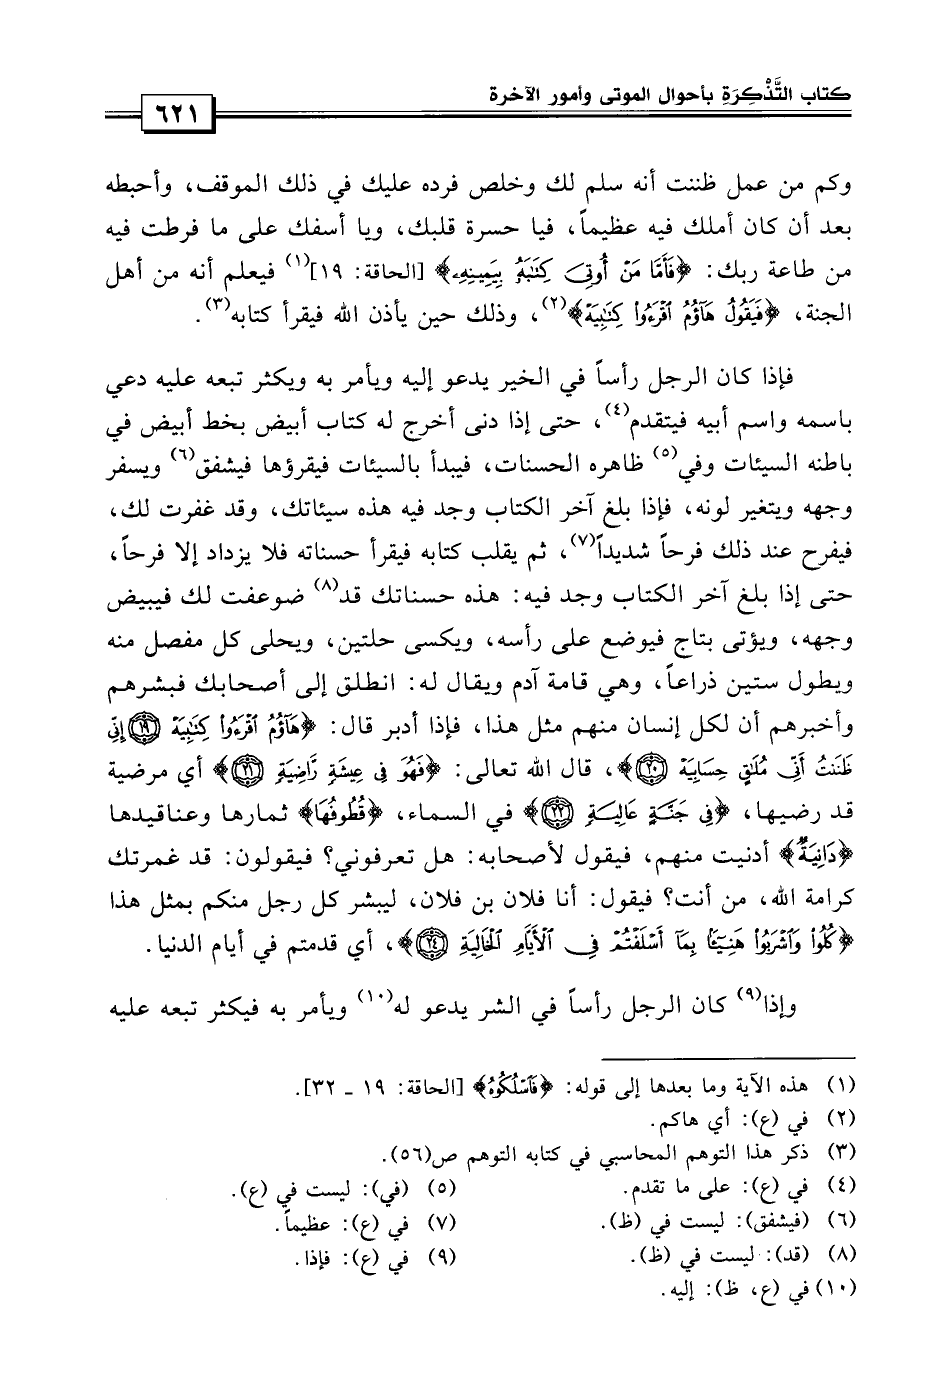 كتاب التَّذْكِرَةِ بأحوال الموتى وأمور الآخرة
٦٢١
وكم من عمل ظننت أنه سلم لك وخلص فرده عليك في ذلك الموقف، وأحبطه
بعد أن كان أملك فيه عظيماً، فيا حسرة قلبك، ويا أسفك على ما فرطت فيه
من طاعة ربك: ﴿فَأَمَّا مَنْ أُوتِيَ كِتَٰبَهُۥ بِيَمِينِهِۦ﴾ [الحاقة: ١٩](١) فيعلم أنه من أهل
الجنة، ﴿فَيَقُولُ هَآؤُمُ ٱقْرَءُوا۟ كِتَٰبِيَهْ﴾(٢)، وذلك حين يأذن الله فيقرأ كتابه(٣).
فإذا كان الرجل رأساً في الخير يدعو إليه ويأمر به ويكثر تبعه عليه دعي
باسمه واسم أبيه فيتقدم(٤)، حتى إذا دنى أخرج له كتاب أبيض بخط أبيض في
باطنه السيئات وفي(٥) ظاهره الحسنات، فيبدأ بالسيئات فيقرؤها فيشفق(٦) ويسفر
وجهه ويتغير لونه، فإذا بلغ آخر الكتاب وجد فيه هذه سيئاتك، وقد غفرت لك،
فيفرح عند ذلك فرحاً شديداً(٧)، ثم يقلب كتابه فيقرأ حسناته فلا يزداد إلا فرحاً،
حتى إذا بلغ آخر الكتاب وجد فيه: هذه حسناتك قد(٨) ضوعفت لك فيبيض
وجهه، ويؤتى بتاج فيوضع على رأسه، ويكسى حلتين، ويحلى كل مفصل منه
ويطول ستين ذراعاً، وهي قامة آدم ويقال له: انطلق إلى أصحابك فبشرهم
وأخبرهم أن لكل إنسان منهم مثل هذا، فإذا أدبر قال: ﴿هَآؤُمُ ٱقْرَءُوا۟ كِتَٰبِيَهْ ١٩ إِنِّى
ظَنَنتُ أَنِّى مُلَٰقٍ حِسَابِيَهْ ٢٠﴾، قال الله تعالى: ﴿فَهُوَ فِى عِيشَةٍ رَّاضِيَةٍ ٢١﴾ أي مرضية
قد رضيها، ﴿فِى جَنَّةٍ عَالِيَةٍ ٢٢﴾ في السماء، ﴿قُطُوفُهَا﴾ ثمارها وعناقيدها
﴿دَانِيَةٌ﴾ أدنيت منهم، فيقول لأصحابه: هل تعرفوني؟ فيقولون: قد غمرتك
كرامة الله، من أنت؟ فيقول: أنا فلان بن فلان، ليبشر كل رجل منكم بمثل هذا
﴿كُلُوا۟ وَٱشْرَبُوا۟ هَنِيٓـًٔۢا بِمَآ أَسْلَفْتُمْ فِى ٱلْأَيَّامِ ٱلْخَالِيَةِ ٢٤﴾، أي قدمتم في أيام الدنيا.
وإذا(٩) كان الرجل رأساً في الشر يدعو له(١٠) ويأمر به فيكثر تبعه عليه
(١) هذه الآية وما بعدها إلى قوله: ﴿فَٱسْلُكُوهُ﴾ [الحاقة: ١٩ ـ ٣٢].
(٢) في (ع): أي هاكم.
(٣) ذكر هذا التوهم المحاسبي في كتابه التوهم ص(٥٦).
(٤) في (ع): على ما تقدم. (٥) (في): ليست في (ع).
(٦) (فيشفق): ليست في (ظ). (٧) في (ع): عظيماً.
(٨) (قد): ليست في (ظ). (٩) في (ع): فإذا.
(١٠) في (ع، ظ): إليه.